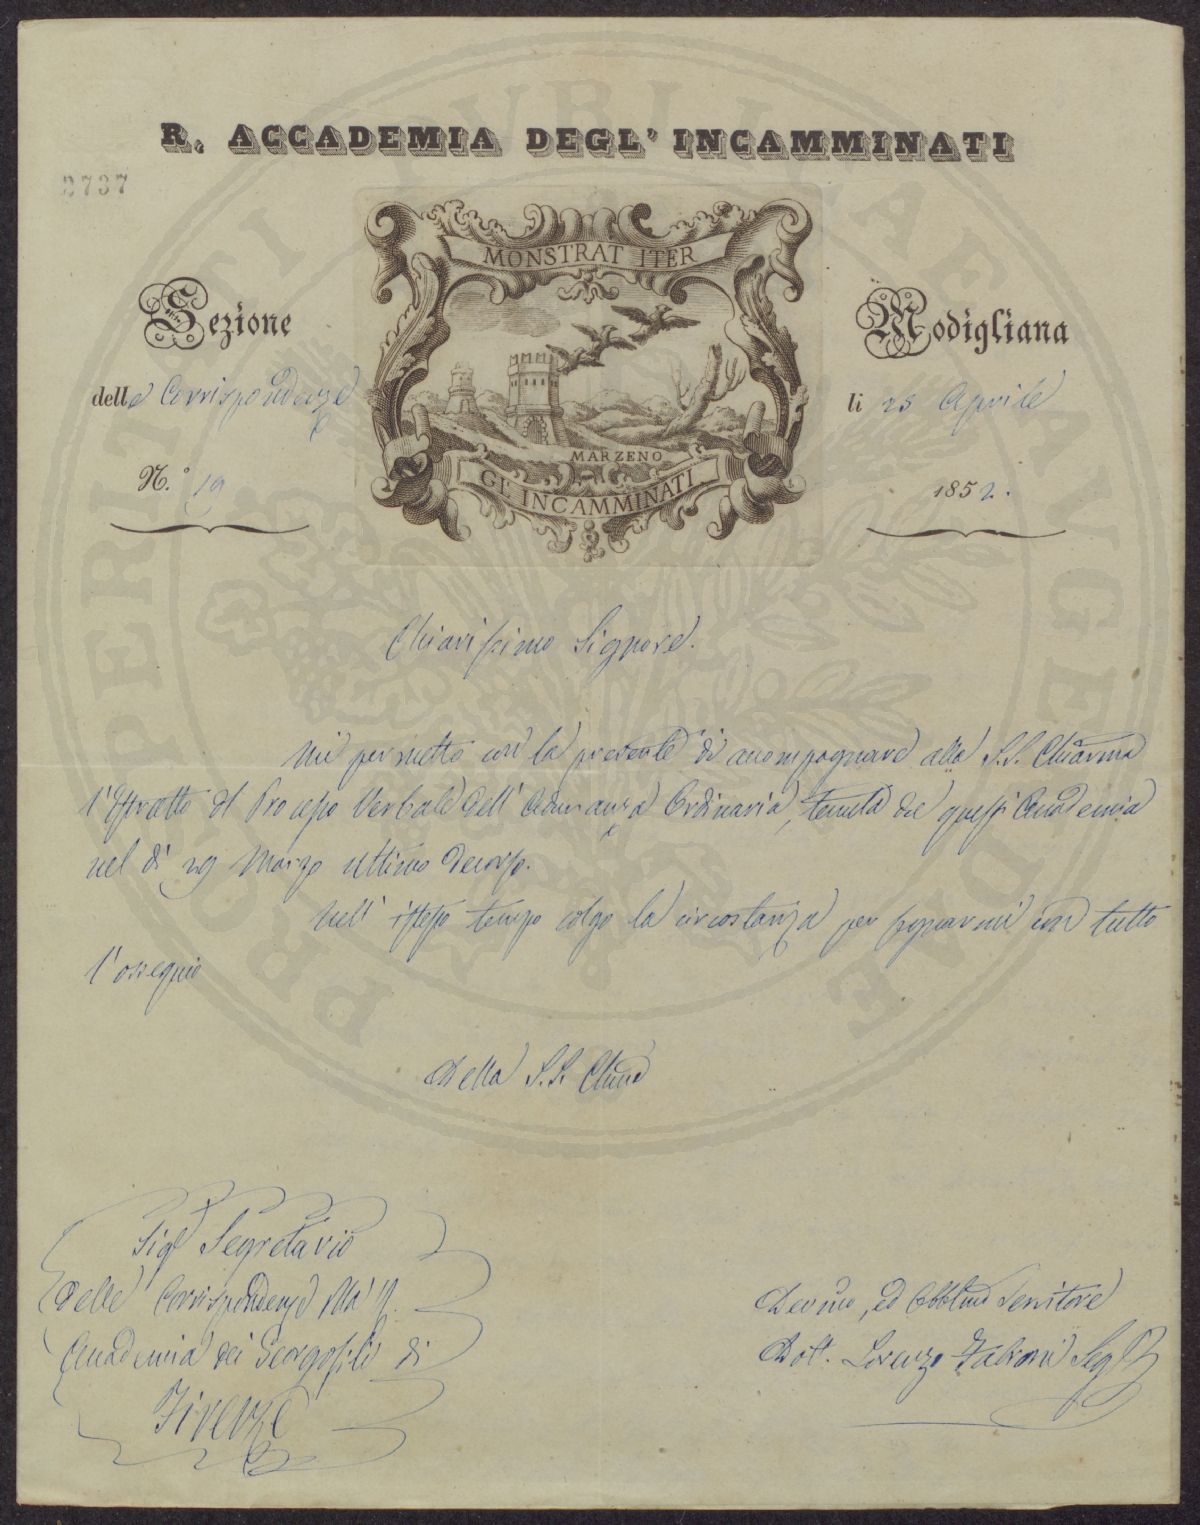 R. ACCADEMIA DEGL' INCAMMINATI
2737
MONSTRAT ITER
MARZENO
GL' INCAMMINATI
Sezione
delle Corrispondenze
N.° 19
Modigliana
li 25 Aprile
1852.
Chiarissimo Signore.
Mi permetto con la presente di accompagnare alla S.S. Chiarma
l'Estratto del Processo Verbale dell' Adunanza Ordinaria, tenuta da quest' Accademia
nel di 29 Marzo ultimo decorso.
Nell' istesso tempo colgo la circostanza per segnarmi con tutto
l'ossequio
Della S.S. Chma
Devmo, ed Obblmo Servitore
Dott. Lorenzo Fabroni Seg
Sigr Segretario
delle Corrispondenze
Accademia dei Georgofili di
Firenze
PERITI PVBLICAE